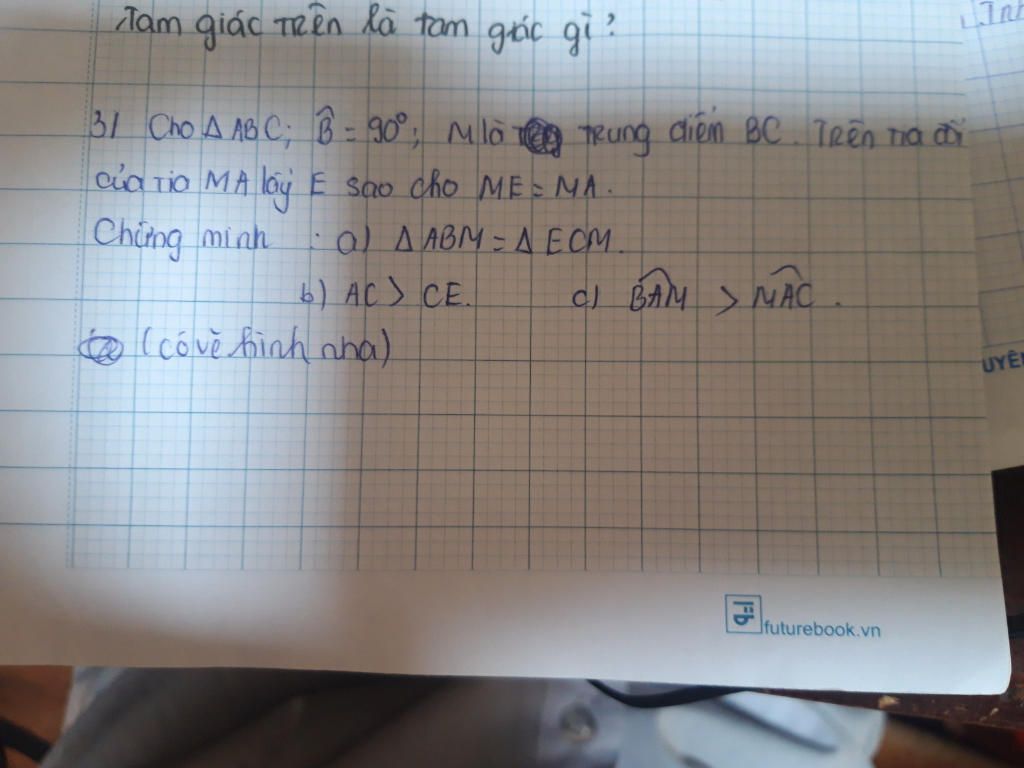 Tam giác trên là tam giác gì?
3/ Cho △ABC; B̂ = 90°; M là trung điểm BC. Trên tia đối
của tia MA lấy E sao cho ME = MA.
Chứng minh : a) △ABM = △ECM.
b) AC > CE. c) B͡AM > M͡AC.
(có vẽ hình nha)
futurebook.vn